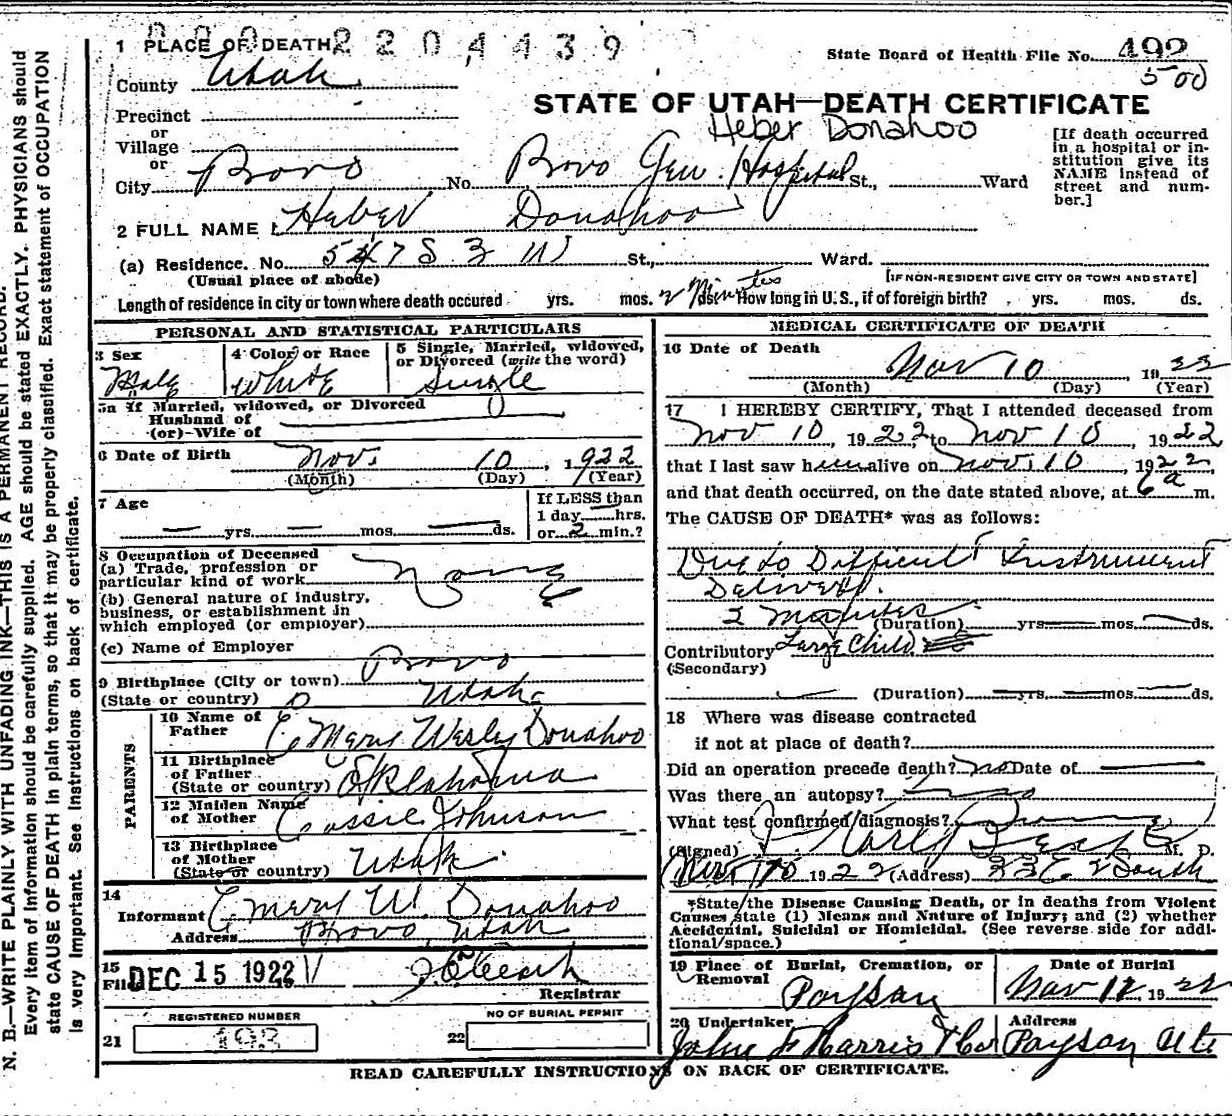 2204439
1 PLACE OF DEATH
State Board of Health File No. 492
500
County Utah
STATE OF UTAH—DEATH CERTIFICATE
Heber Donahoo
Precinct
or
Village
or
City Provo No. Provo Gen. Hospital St., Ward
[If death occurred
in a hospital or in-
stitution give its
NAME instead of
street and num-
ber.]
2 FULL NAME Heber Donahoo
(a) Residence. No. 547 S 3 W St., Ward.
(Usual place of abode)
[IF NON-RESIDENT GIVE CITY OR TOWN AND STATE]
Length of residence in city or town where death occured yrs. mos. 2 Minutes ds. How long in U. S., if of foreign birth? yrs. mos. ds.
PERSONAL AND STATISTICAL PARTICULARS
3 Sex
Male
4 Color or Race
White
5 Single, Married, widowed,
or Divorced (write the word)
Single
5a if Married, widowed, or Divorced
Husband of
(or) Wife of
6 Date of Birth Nov. 10, 1922
(Month) (Day) (Year)
7 Age
yrs. mos. ds.
If LESS than
1 day hrs.
or 2 min.?
8 Occupation of Deceased
(a) Trade, profession or
particular kind of work None
(b) General nature of industry,
business, or establishment in
which employed (or employer)
(c) Name of Employer
9 Birthplace (City or town) Provo
(State or country) Utah
PARENTS
10 Name of
Father Emery Wesley Donahoo
11 Birthplace
of Father
(State or country) Oklahoma
12 Maiden Name
of Mother Cassie Johnson
13 Birthplace
of Mother
(State or country) Utah
14
Informant Emery W. Donahoo
Address Provo, Utah
15
Filed DEC 15 1922
Registrar
REGISTERED NUMBER
21 193
NO OF BURIAL PERMIT
22
MEDICAL CERTIFICATE OF DEATH
16 Date of Death
Nov 10 1922
(Month) (Day) (Year)
17 I HEREBY CERTIFY, That I attended deceased from
Nov 10, 1922 to Nov 10, 1922
that I last saw him alive on Nov. 10, 1922,
and that death occurred, on the date stated above, at 6 a m.
The CAUSE OF DEATH* was as follows:
Due to Difficult Instrument
Delivery.
2 Minutes (Duration) yrs mos. ds.
Contributory Large Child
(Secondary)
(Duration) yrs mos ds.
18 Where was disease contracted
if not at place of death?
Did an operation precede death? no Date of
Was there an autopsy? no
What test confirmed diagnosis?
(Signed) M. D.
Nov 10 1922 (Address) 33 E 2 South
*State the Disease Causing Death, or in deaths from Violent
Causes state (1) Means and Nature of Injury; and (2) whether
Accidental, Suicidal or Homicidal. (See reverse side for addi-
tional space.)
19 Place of Burial, Cremation, or
Removal
Payson
Date of Burial
Nov 12, 1922
20 Undertaker
John F Harris & Co
Address
Payson Ut
READ CAREFULLY INSTRUCTIONS ON BACK OF CERTIFICATE.
N. B.—WRITE PLAINLY WITH UNFADING INK—THIS IS A PERMANENT RECORD.
Every item of information should be carefully supplied. AGE should be stated EXACTLY. PHYSICIANS should
state CAUSE OF DEATH in plain terms, so that it may be properly classified. Exact statement of OCCUPATION
is very important. See instructions on back of certificate.